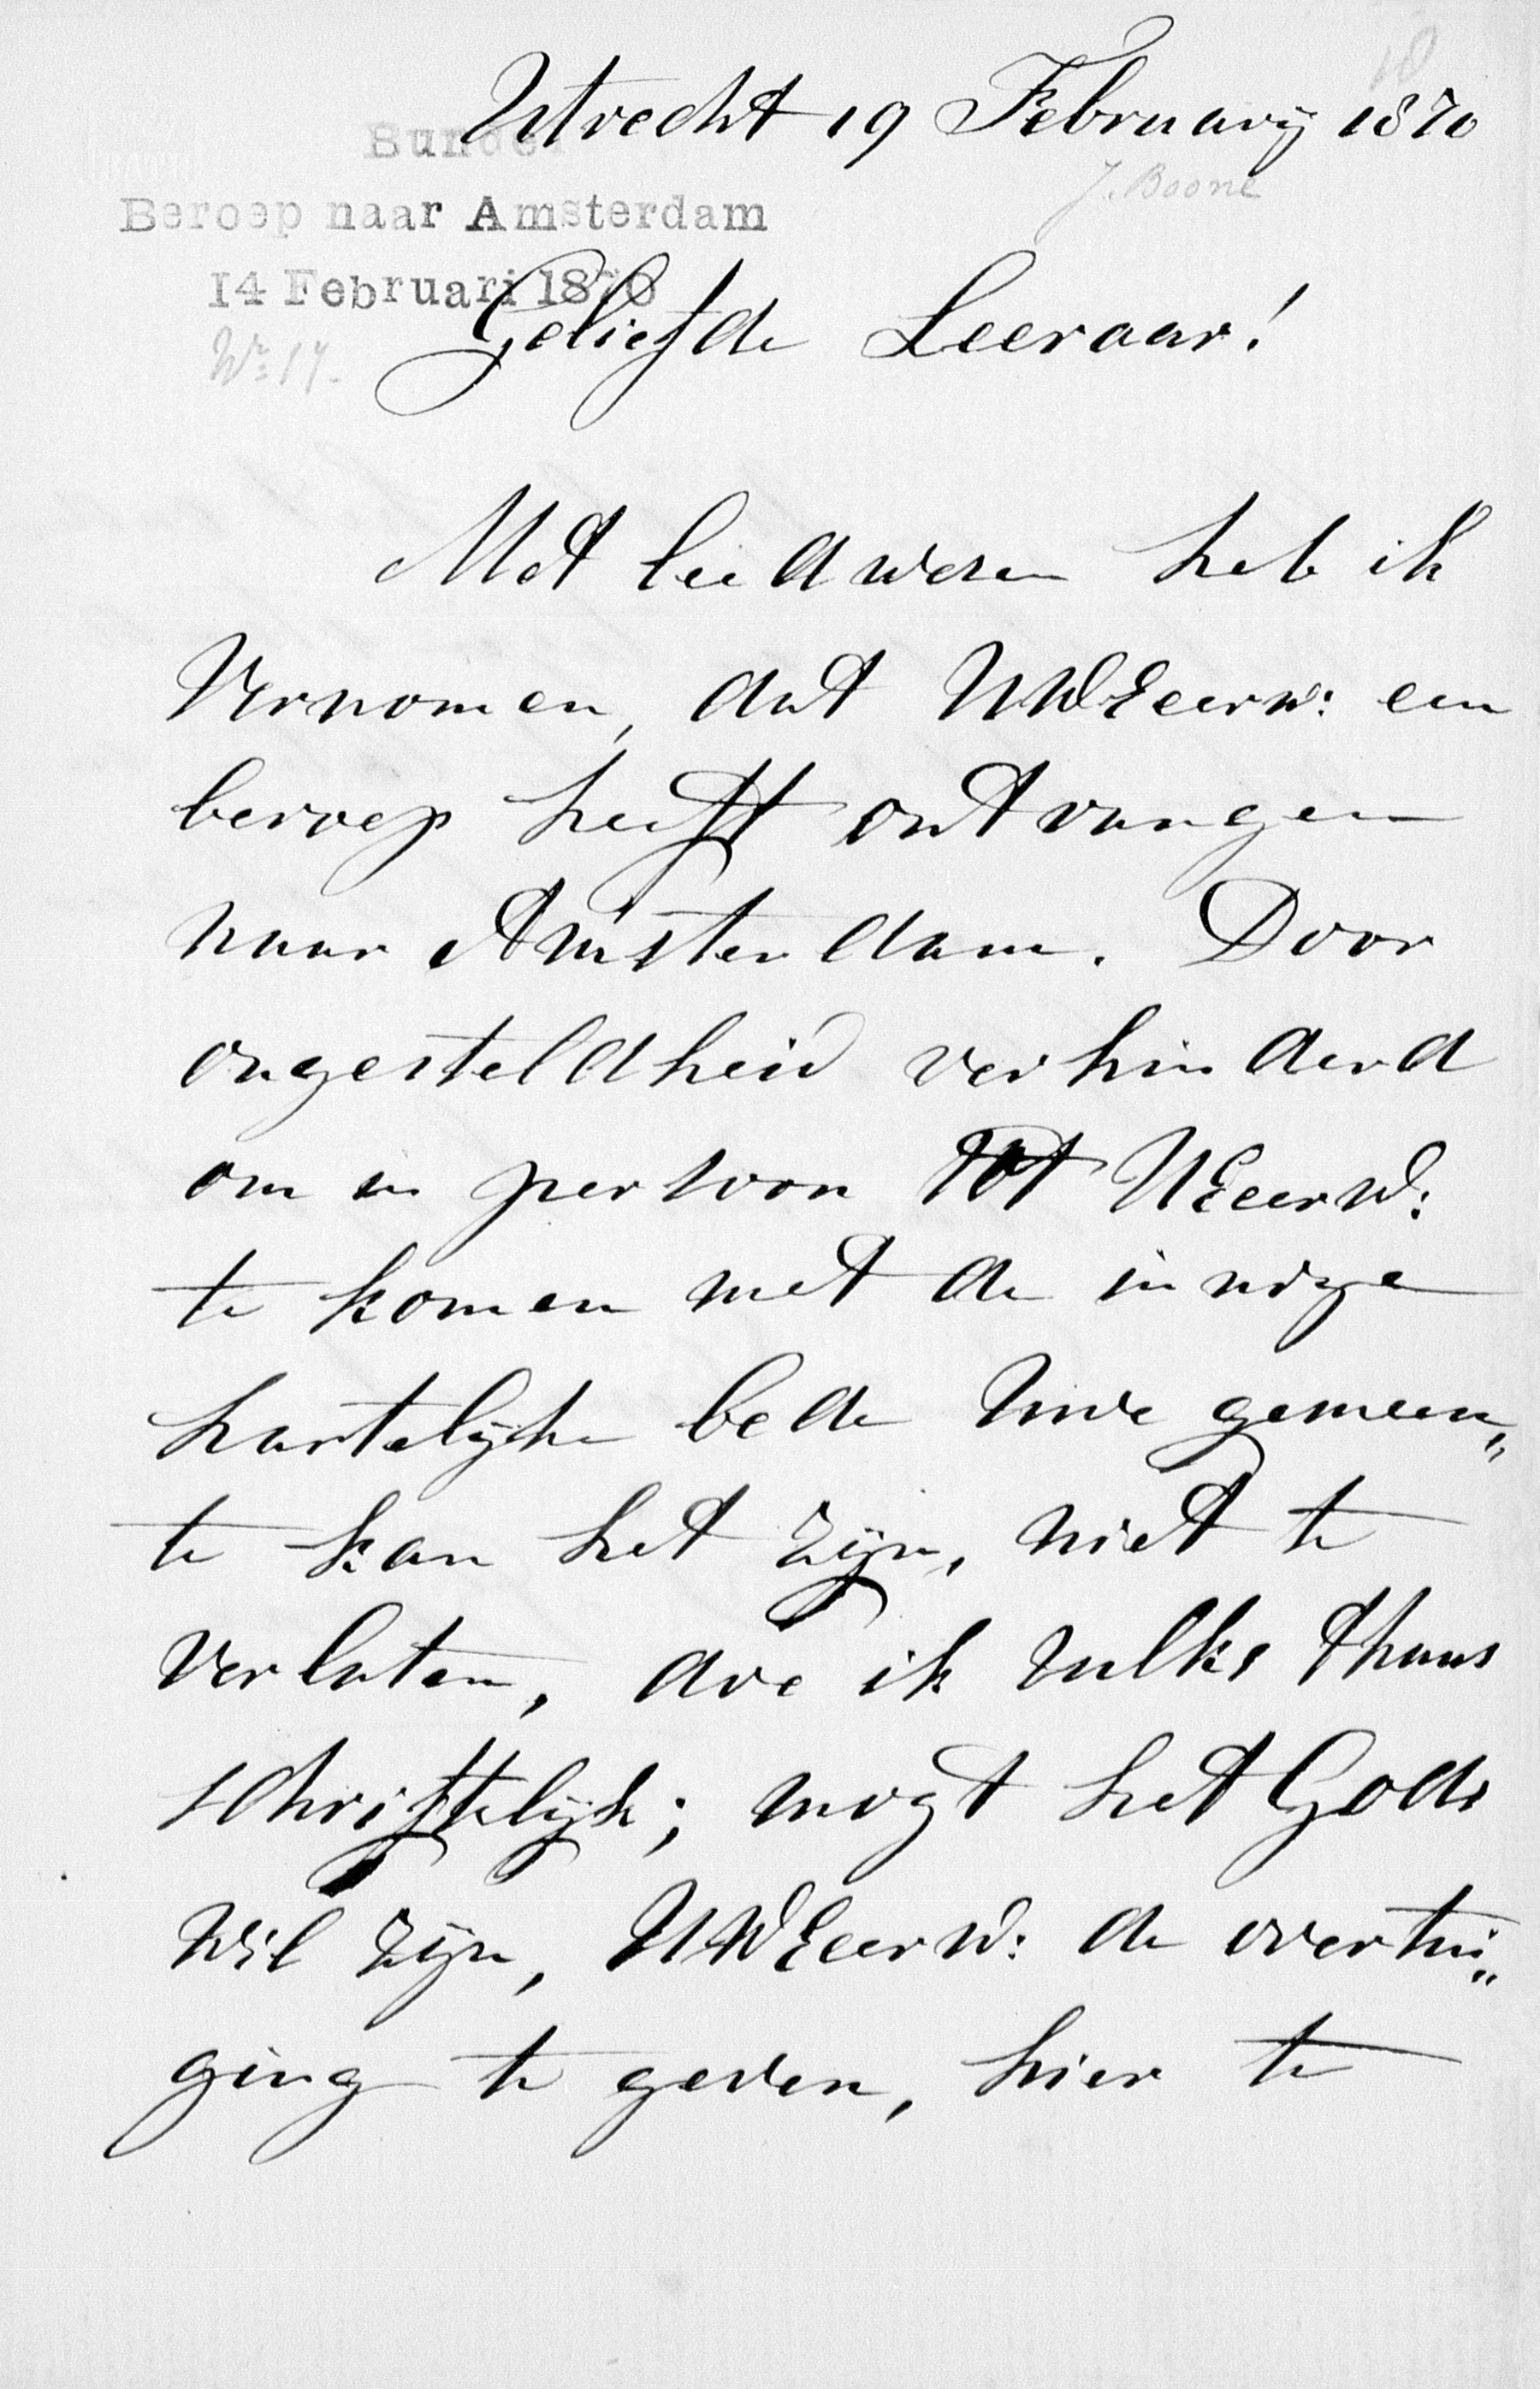 Utrecht 19 February 1870
J. Boone
Bundel
Beroep naar Amsterdam
14 Februari 1870
Geliefde Leeraar!
Met leedwezen heb ik
vernomen, dat UWEeerw: een
beroep heeft ontvangen
naar Amsterdam. Door
ongesteldheid verhinderd
om in persoon tot UEeerw:
te komen met de innige
hartelijke bede Uwe gemeen„
te kan het zijn, niet te
verlaten, doe ik zulks thans
schriftelijk; mogt het Gods
wil zijn, UWEeerw: de overtui„
ging te geven, hier te